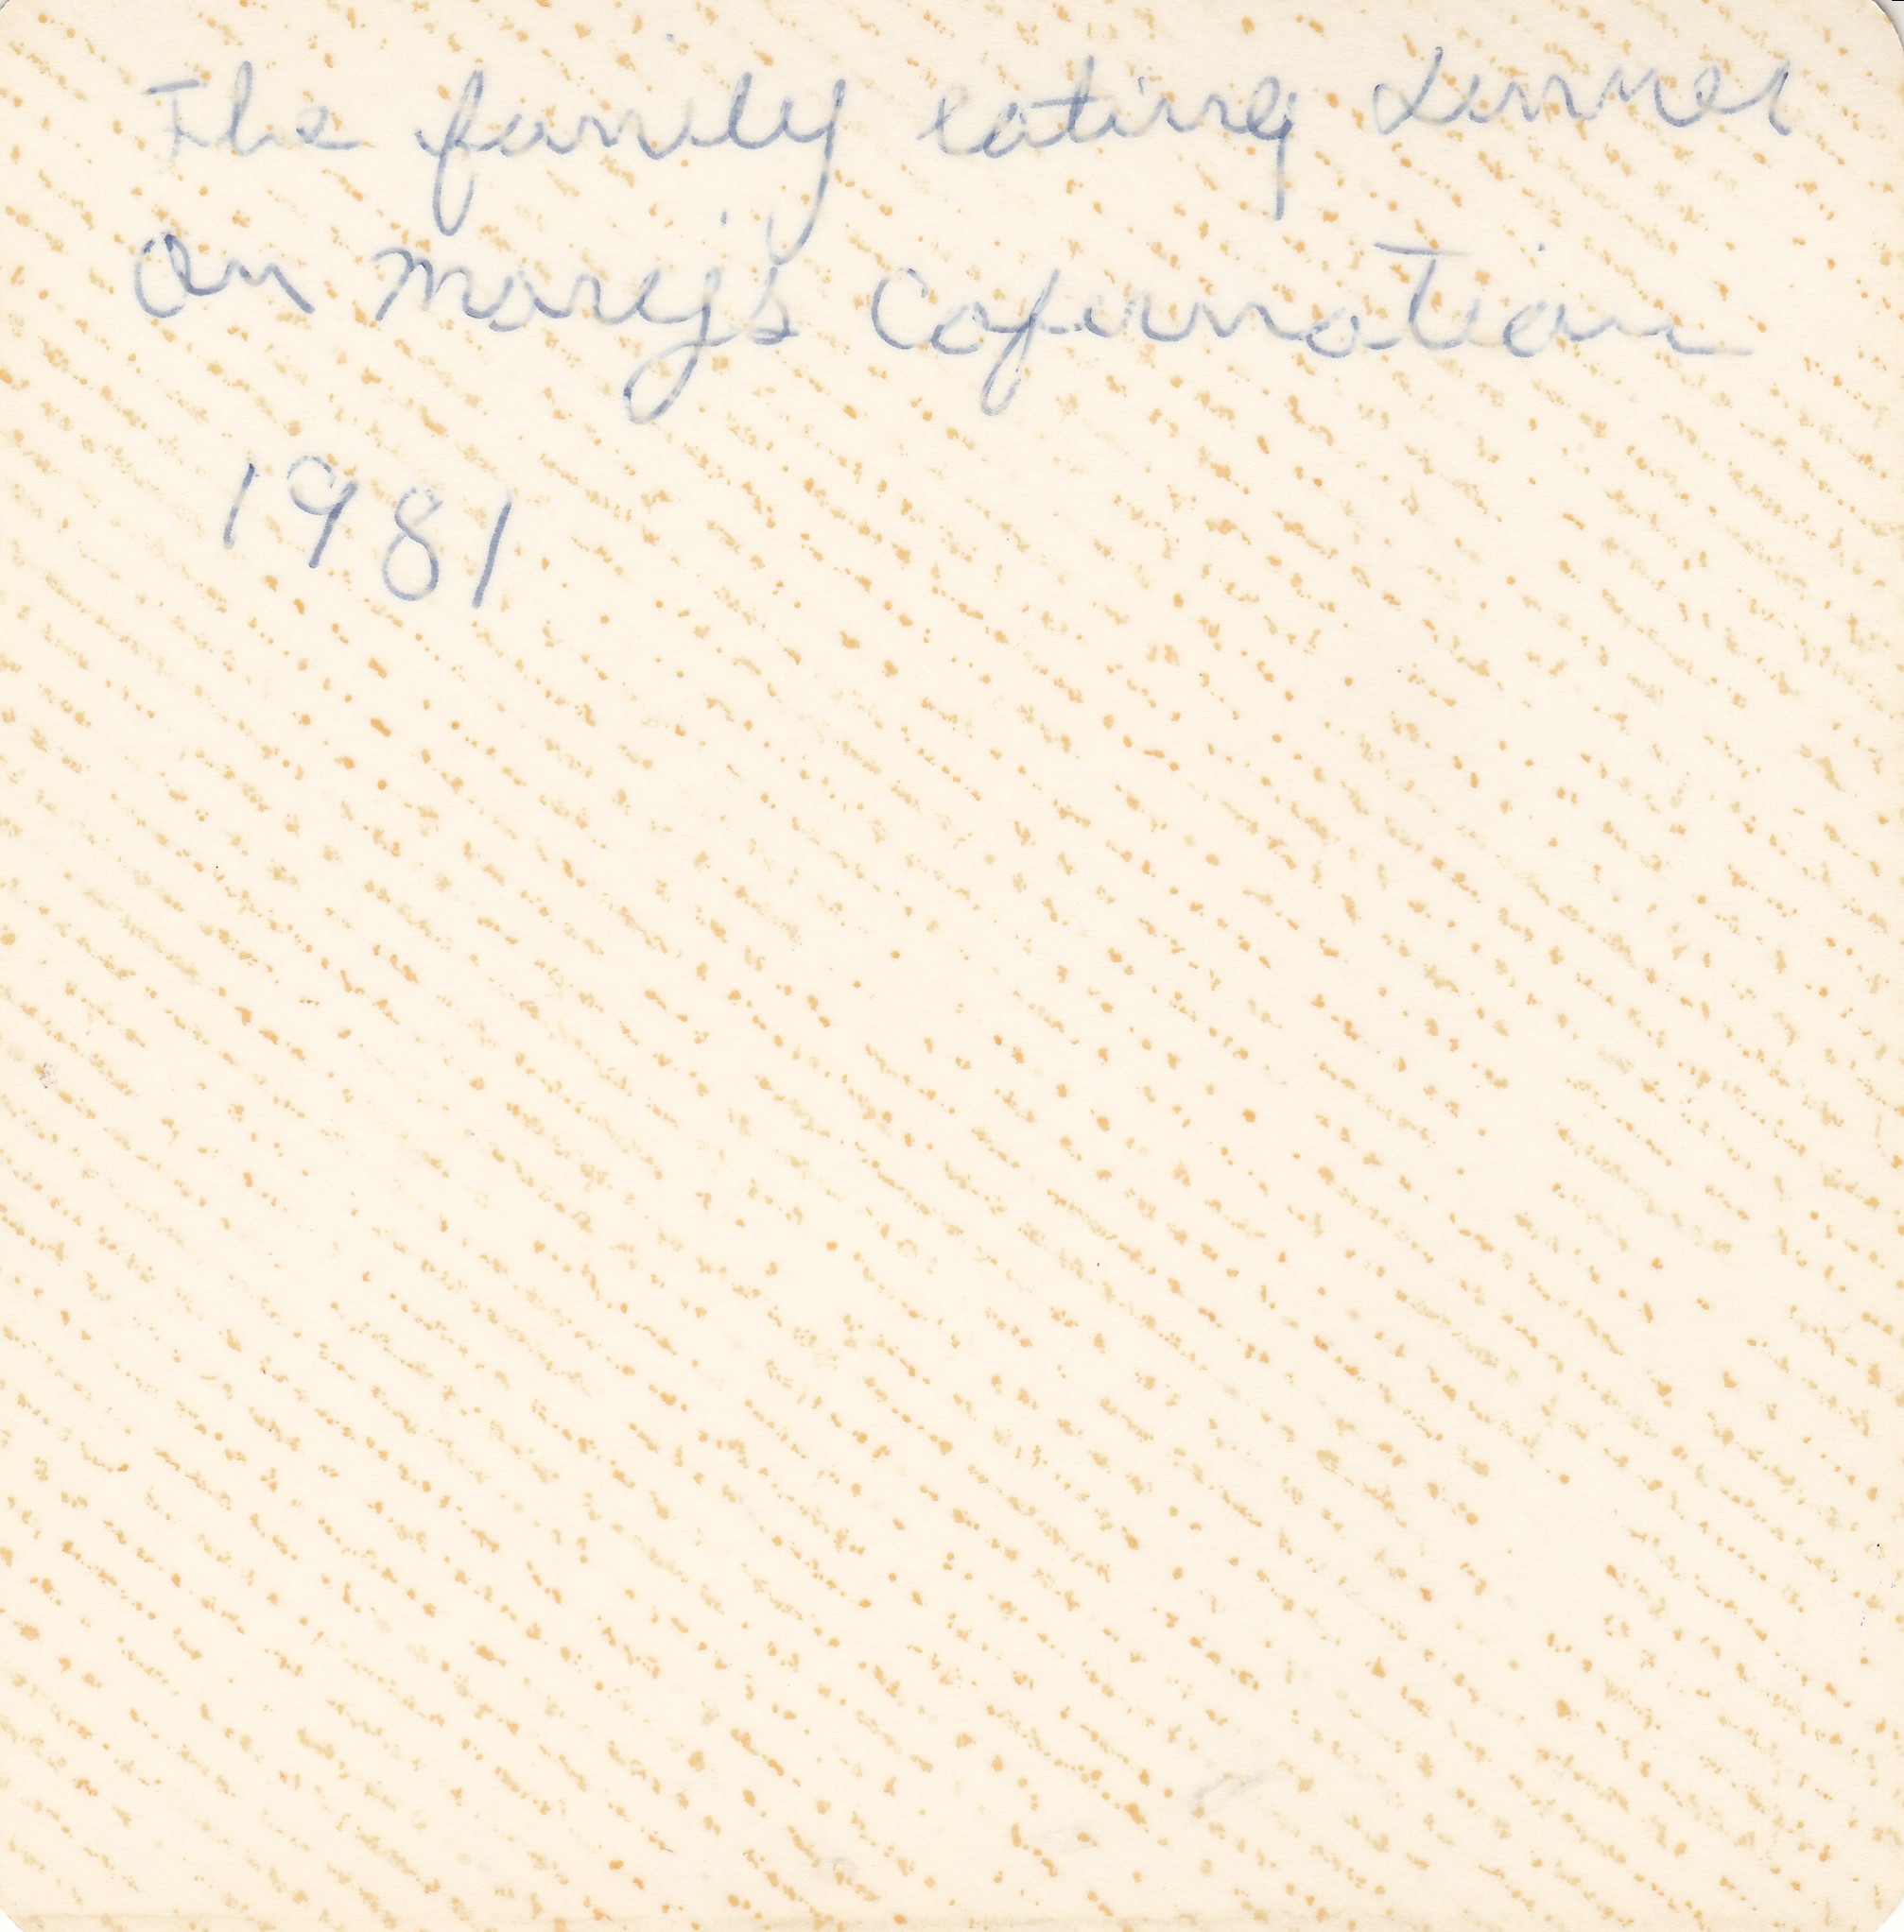 The family eating dinner
On Mary's Cofirmation
1981